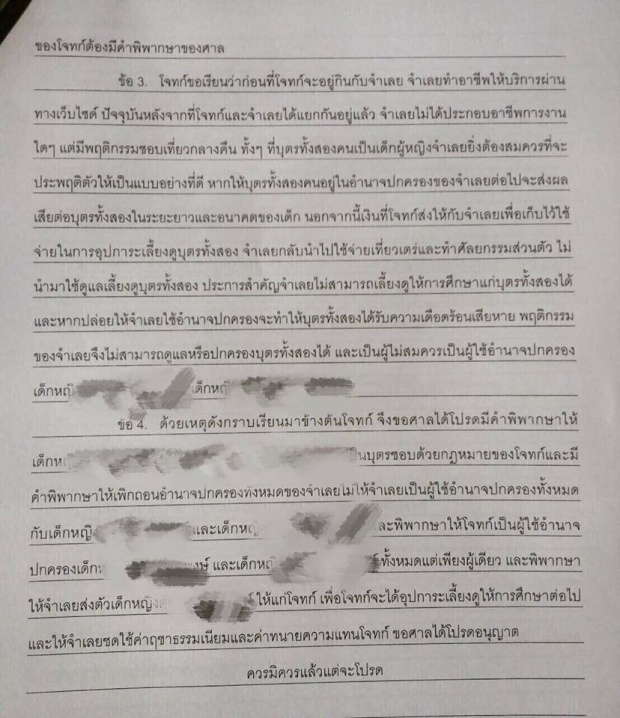 ของโจทก์ต้องมีคำพิพากษาของศาล
ข้อ 3. โจทก์ขอเรียนว่าก่อนที่โจทก์จะอยู่กินกับจำเลย จำเลยทำอาชีพให้บริการผ่าน
ทางเว็บไซด์ ปัจจุบันหลังจากที่โจทก์และจำเลยได้แยกกันอยู่แล้ว จำเลยไม่ได้ประกอบอาชีพการงาน
ใดๆ แต่มีพฤติกรรมชอบเที่ยวกลางคืน ทั้งๆ ที่บุตรทั้งสองคนเป็นเด็กผู้หญิงจำเลยยิ่งต้องสมควรที่จะ
ประพฤติตัวให้เป็นแบบอย่างที่ดี หากให้บุตรทั้งสองคนอยู่ในอำนาจปกครองของจำเลยต่อไปจะส่งผล
เสียต่อบุตรทั้งสองในระยะยาวและอนาคตของเด็ก นอกจากนี้เงินที่โจทก์ส่งให้กับจำเลยเพื่อเก็บไว้ใช้
จ่ายในการอุปการะเลี้ยงดูบุตรทั้งสอง จำเลยกลับนำไปใช้จ่ายเที่ยวเตร่และทำศัลยกรรมส่วนตัว ไม่
นำมาใช้ดูแลเลี้ยงดูบุตรทั้งสอง ประการสำคัญจำเลยไม่สามารถเลี้ยงดูให้การศึกษาแก่บุตรทั้งสองได้
และหากปล่อยให้จำเลยใช้อำนาจปกครองจะทำให้บุตรทั้งสองได้รับความเดือดร้อนเสียหาย พฤติกรรม
ของจำเลยจึงไม่สามารถดูแลหรือปกครองบุตรทั้งสองได้ และเป็นผู้ไม่สมควรเป็นผู้ใช้อำนาจปกครอง
เด็กหญิ เด็กหญิ
ข้อ 4. ด้วยเหตุดังกราบเรียนมาข้างต้นโจทก์ จึงขอศาลได้โปรดมีคำพิพากษาให้
เด็กห เป็นบุตรชอบด้วยกฎหมายของโจทก์และมี
คำพิพากษาให้เพิกถอนอำนาจปกครองทั้งหมดของจำเลยไม่ให้จำเลยเป็นผู้ใช้อำนาจปกครองทั้งหมด
กับเด็กหญิ และเด็กห ละพิพากษาให้โจทก์เป็นผู้ใช้อำนาจ
ปกครองเด็ก และเด็กห ทั้งหมดแต่เพียงผู้เดียว และพิพากษา
ให้จำเลยส่งตัวเด็กหญิง ให้แก่โจทก์ เพื่อโจทก์จะได้อุปการะเลี้ยงดูให้การศึกษาต่อไป
และให้จำเลยชดใช้ค่าฤชาธรรมเนียมและค่าทนายความแทนโจทก์ ขอศาลได้โปรดอนุญาต
ควรมิควรแล้วแต่จะโปรด